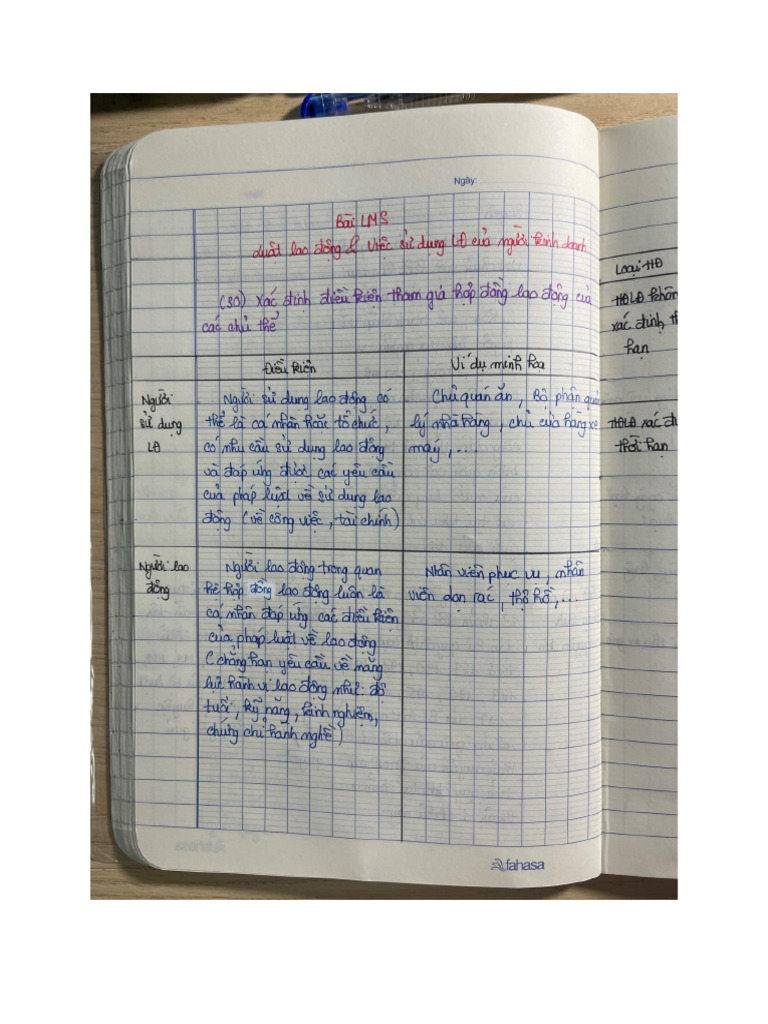 Ngày:
Bài LMS
Luật lao động & Việc sử dụng LĐ của người kinh doanh
(30) Xác định điều kiện tham gia hợp đồng lao động của
các chủ thể
Điều kiện
Ví dụ minh hoạ
Người
sử dụng
LĐ
Người sử dụng lao động có
thể là cá nhân hoặc tổ chức,
có nhu cầu sử dụng lao động
và đáp ứng được các yêu cầu
của pháp luật về sử dụng lao
động (về công việc, tài chính)
Chủ quán ăn, Bộ phận quản
lý nhà hàng, chủ cửa hàng xe
máy,...
Người lao
động
Người lao động trong quan
hệ hợp đồng lao động luôn là
cá nhân đáp ứng các điều kiện
của pháp luật về lao động
(chẳng hạn yêu cầu về năng
lực hành vi lao động như: độ
tuổi, kỹ năng, kinh nghiệm,
chứng chỉ hành nghề)
Nhân viên phục vụ, nhân
viên dọn rác, thợ hồ,...
fahasa
Loại HĐ
HĐLĐ không
xác định th
hạn
HĐLĐ xác đị
thời hạn